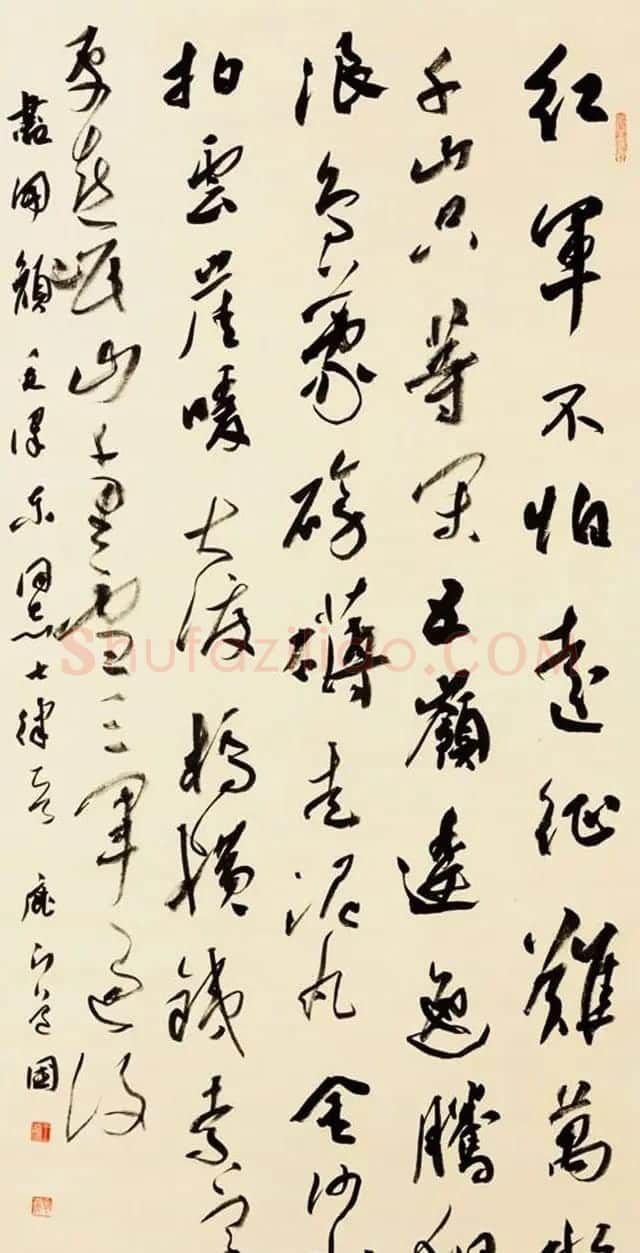 紅軍不怕遠征難萬
千山只等閑五嶺逶迤騰
浪烏蒙磅礴走泥丸金沙
拍雲崖暖大渡橋橫鐵索寒
更喜岷山千里雪三軍過後
盡開顏毛澤東同志七律
Shufaziliao.COM